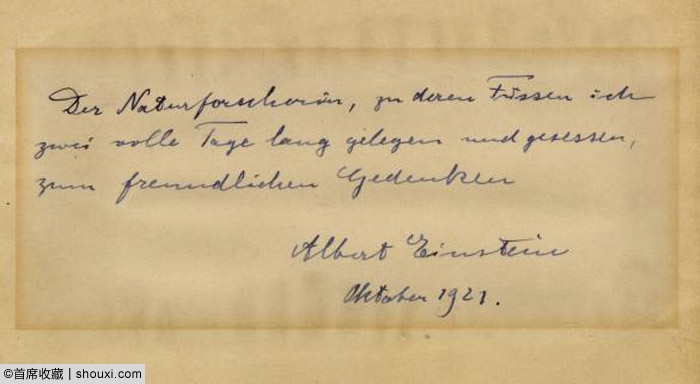 Der Naturforscherin, zu deren Füssen ich
zwei volle Tage lang gelegen und gesessen,
zum freundlichen Gedenken
Albert Einstein
Oktober 1921.
©首席收藏 | shouxi.com